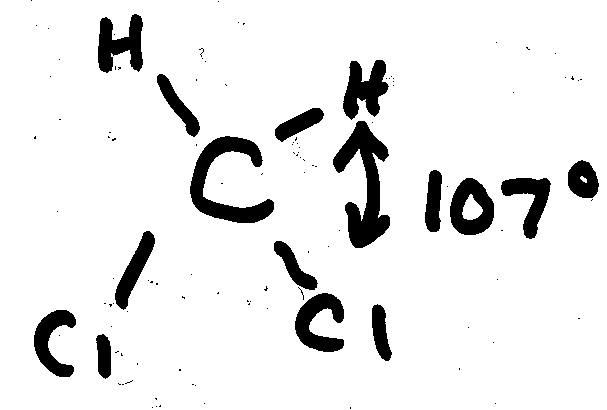 H
H
C
107°
Cl
Cl